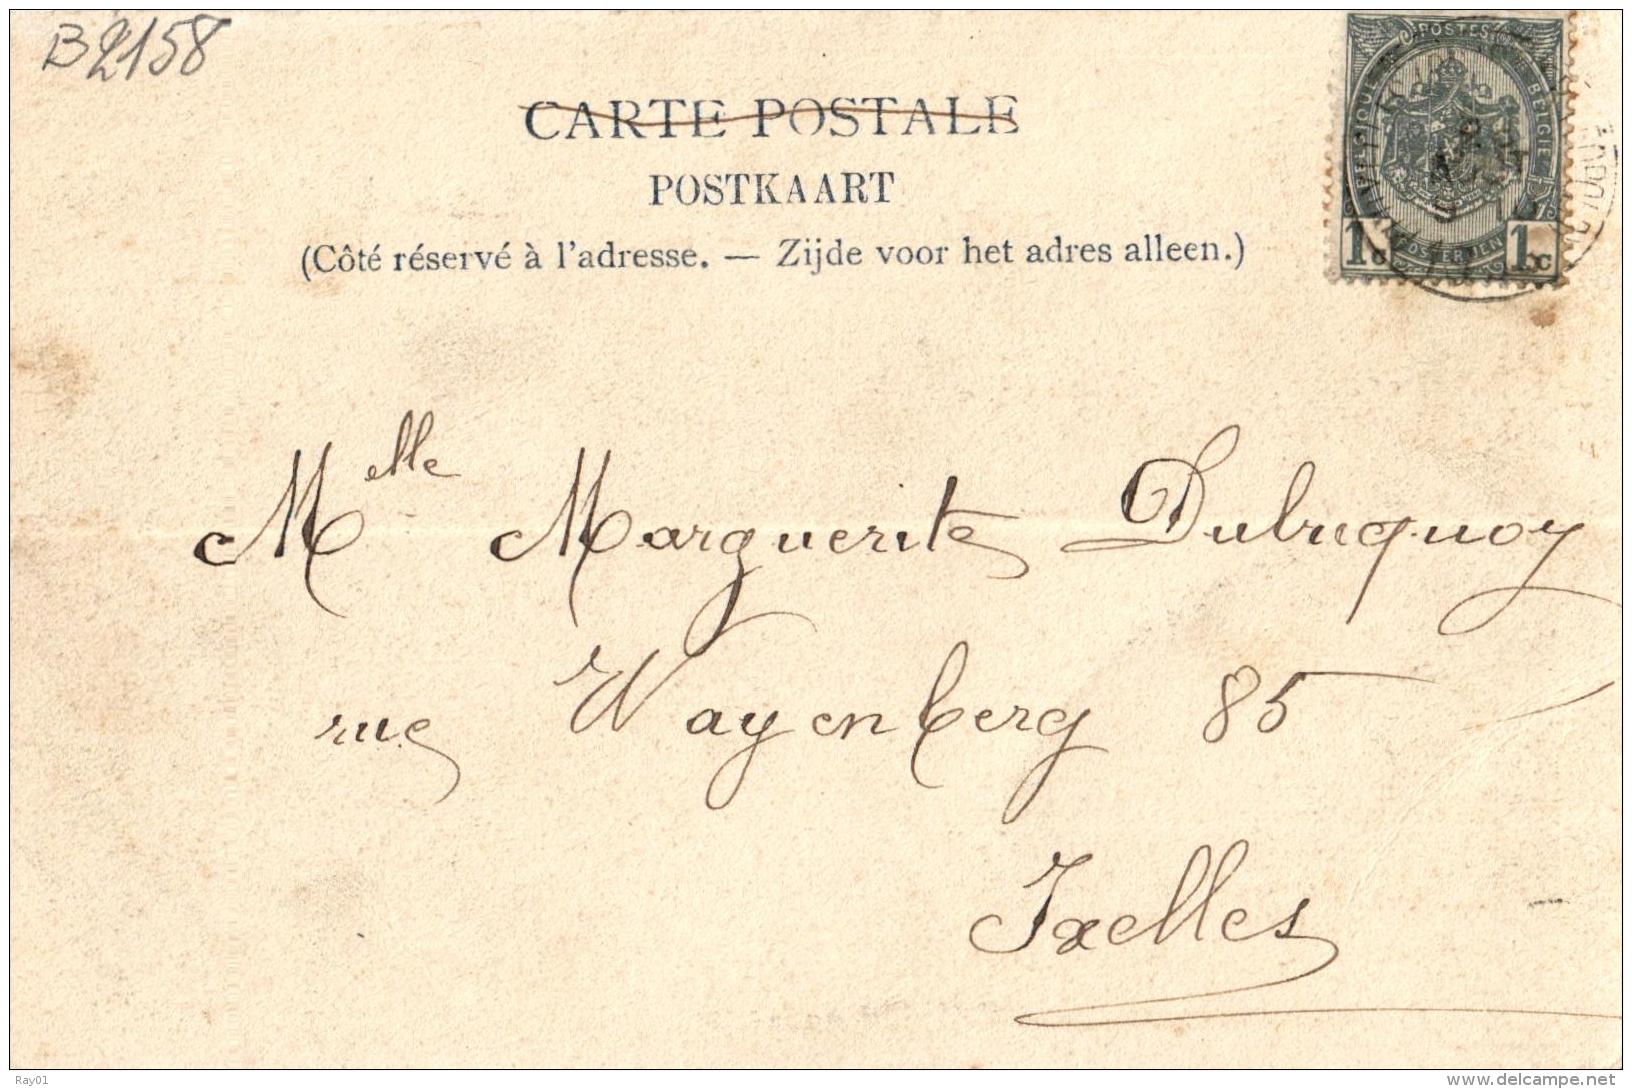 B2158
CARTE POSTALE
POSTKAART
(Côté réservé à l'adresse. — Zijde voor het adres alleen.)
POSTES BELGIE
1c 1c
Melle Marguerite Dubuquoy
rue Wayenberg 85
Ixelles
Ray01
www.delcampe.net